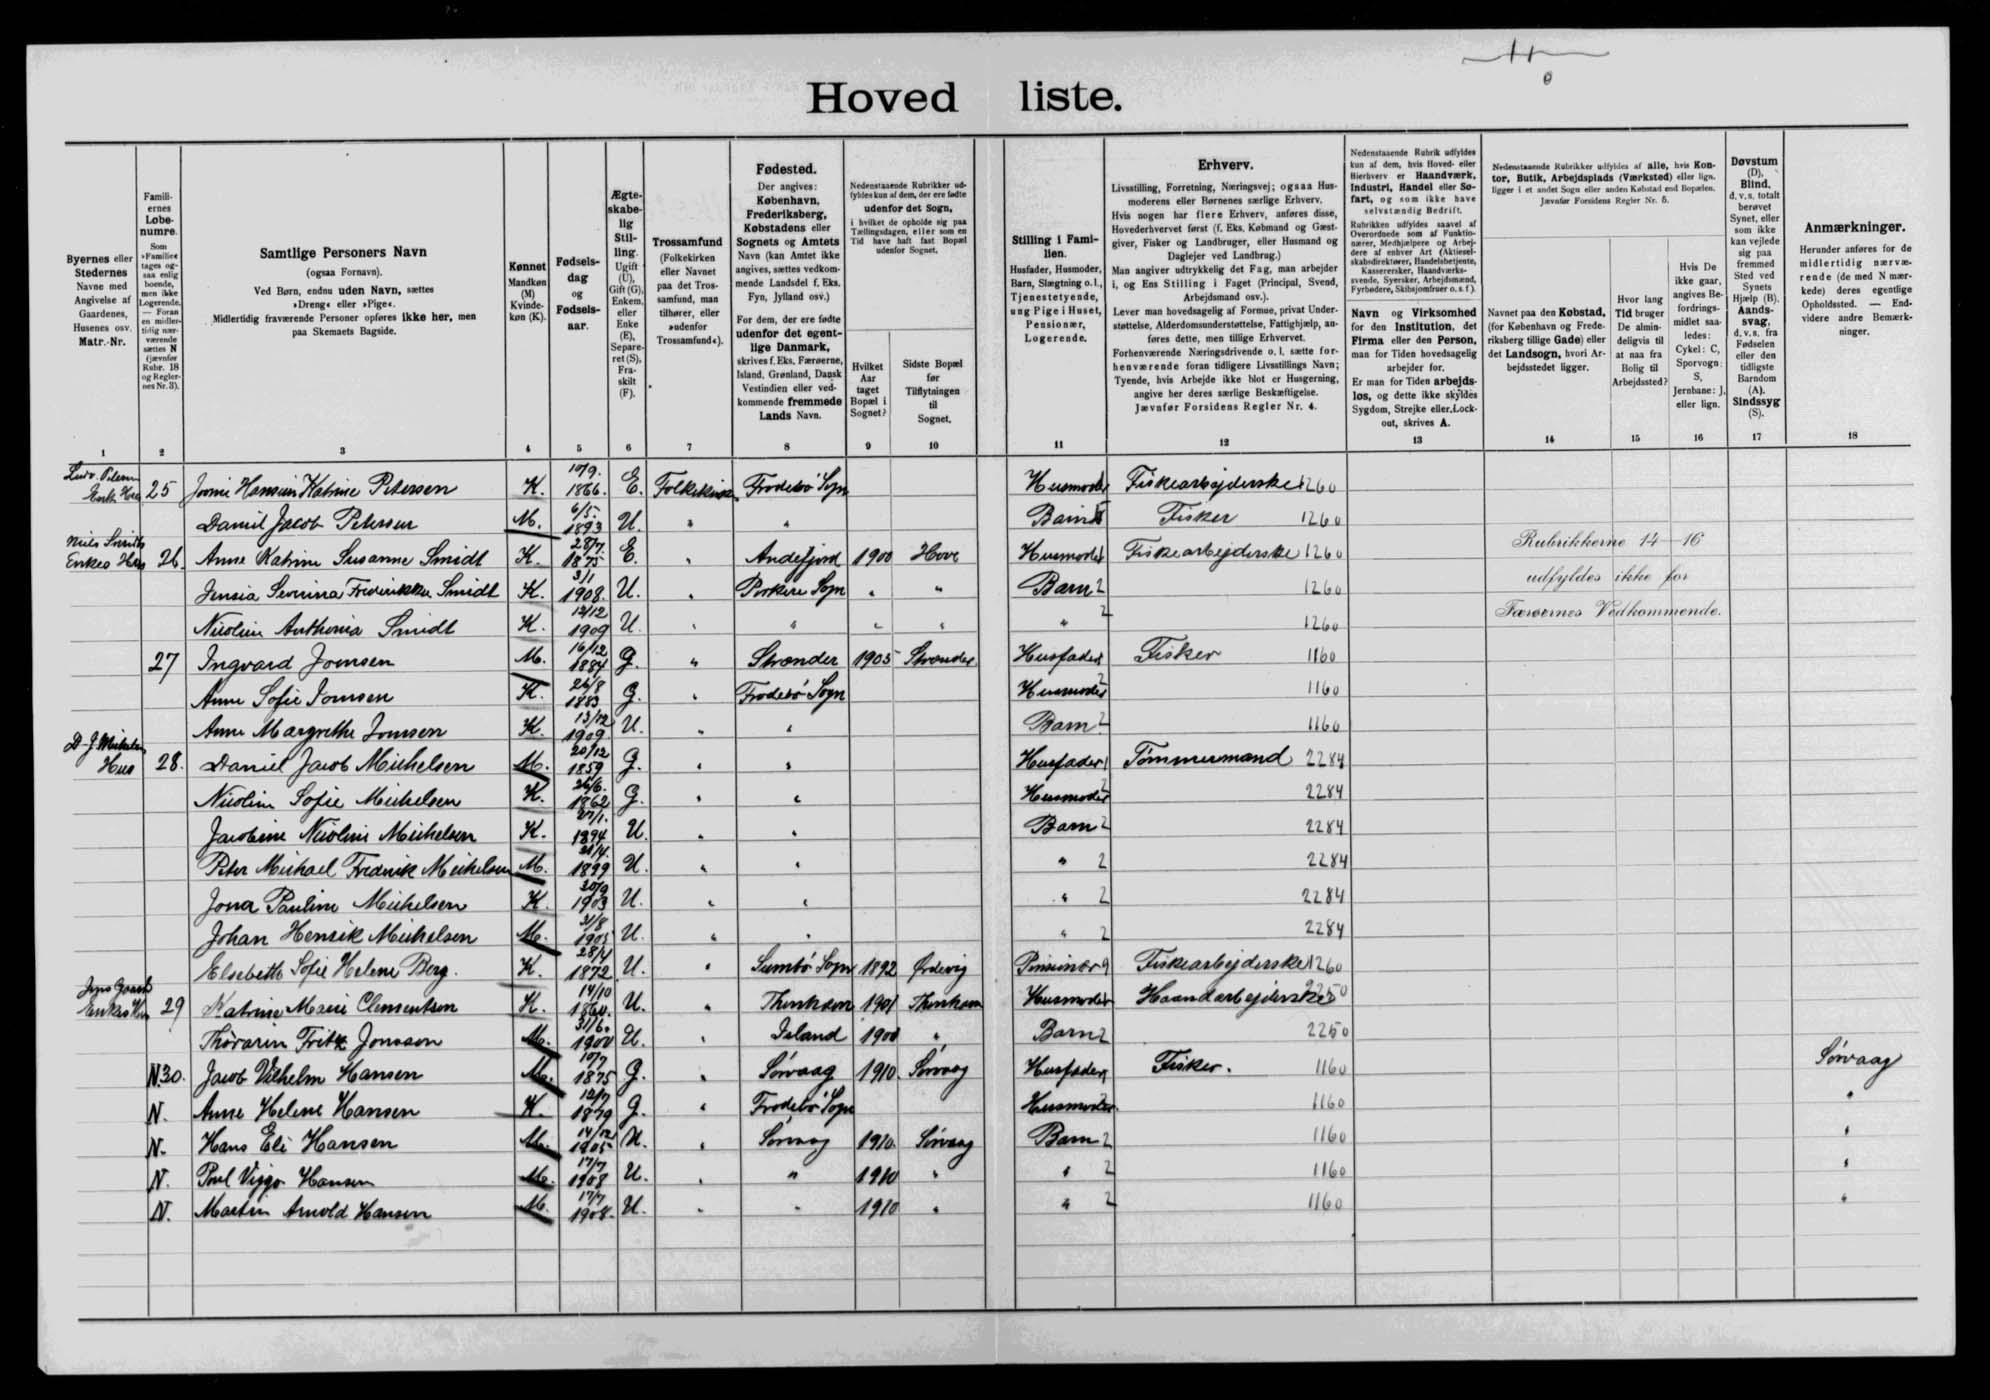 Hoved liste.
Byernes eller Stedernes Navne med Angivelse af Gaardenes, Husenes osv. Matr.-Nr.
Familiernes Løbenumre. Som »Familie« tages ogsaa enlig boende, men ikke Logerende. — Foran en midlertidig nærværende sættes N (jævnfør Rubr. 18 og Regler-nes Nr. 3).
Samtlige Personers Navn (ogsaa Fornavn). Ved Børn, endnu uden Navn, sættes »Dreng« eller »Pige«. Midlertidig fraværende Personer opføres ikke her, men paa Skemaets Bagside.
Kønnet Mandkøn (M) Kvindekøn (K).
Fødselsdag og Fødselsaar.
Ægteskabelig Stilling. Ugift (U), Gift (G), Enkem. eller Enke (E), Separeret (S), Fraskilt (F).
Trossamfund (Folkekirken eller Navnet paa det Trossamfund, man tilhører, eller »udenfor Trossamfund«).
Fødested. Der angives: København, Frederiksberg, Købstadens eller Sognets og Amtets Navn (kan Amtet ikke angives, sættes vedkommende Landsdel f. Eks. Fyn, Jylland osv.) For dem, der ere fødte udenfor det egentlige Danmark, skrives f. Eks. Færøerne, Island, Grønland, Dansk Vestindien eller vedkommende fremmede Lands Navn.
Nedenstaaende Rubrikker udfyldes kun af dem, der ere fødte udenfor det Sogn, i hvilket de opholde sig paa Tællingsdagen, eller som en Tid have haft fast Bopæl udenfor Sognet.
Hvilket Aar taget Bopæl i Sognet?
Sidste Bopæl før Tilflytningen til Sognet.
Stilling i Familien. Husfader, Husmoder, Barn, Slægtning o. l., Tjenestetyende, ung Pige i Huset, Pensionær, Logerende.
Erhverv. Livsstilling, Forretning, Næringsvej; ogsaa Husmoderens eller Børnenes særlige Erhverv. Hvis nogen har flere Erhverv, anføres disse, Hovederhvervet først (f. Eks. Købmand og Gæstgiver, Fisker og Landbruger, eller Husmand og Daglejer ved Landbrug.) Man angiver udtrykkelig det Fag, man arbejder i, og Ens Stilling i Faget (Principal, Svend, Arbejdsmand osv.). Lever man hovedsagelig af Formue, privat Understøttelse, Alderdomsunderstøttelse, Fattighjælp, anføres dette, men tillige Erhvervet. Forhenværende Næringsdrivende o. l. sætte forhenværende foran tidligere Livsstillings Navn; Tyende, hvis Arbejde ikke blot er Husgerning, angive her deres særlige Beskæftigelse. Jævnfør Forsidens Regler Nr. 4.
Nedenstaaende Rubrik udfyldes kun af dem, hvis Hoved- eller Bierhverv er Haandværk, Industri, Handel eller Søfart, og som ikke have selvstændig Bedrift. Rubrikken udfyldes saavel af Overordnede som af Funktionærer, Medhjælpere og Arbejdere af enhver Art (Aktieselskabsdirektører, Handelsbetjente, Kassererskér, Haandværkssvende, Syersker, Arbejdsmænd, Fyrbødere, Skibsjomfruer o. s. f.).
Navn og Virksomhed for den Institution, det Firma eller den Person, man for Tiden hovedsagelig arbejder for. Er man for Tiden arbejdsløs, og dette ikke skyldes Sygdom, Strejke eller Lockout, skrives A.
Nedenstaaende Rubrikker udfyldes af alle, hvis Kontor, Butik, Arbejdsplads (Værksted) eller lign. ligger i et andet Sogn eller anden Købstad end Bopælen. Jævnfør Forsidens Regler Nr. 5.
Navnet paa den Købstad, (for København og Frederiksberg tillige Gade) eller det Landsogn, hvori Arbejdsstedet ligger.
Hvor lang Tid bruger De almindeligvis til at naa fra Bolig til Arbejdssted?
Hvis De ikke gaar, angives Befordringsmidlet saaledes: Cykel: C, Sporvogn: S, Jernbane: J, eller lign.
Døvstum (D), Blind, d. v. s. totalt berøvet Synet, eller som ikke kan vejlede sig paa fremmed Sted ved Synets Hjælp (B). Aandssvag, d. v. s. fra Fødselen eller den tidligste Barndom (A). Sindssyg (S).
Anmærkninger. Herunder anføres for de midlertidig nærværende (de med N mærkede) deres egentlige Opholdssted. — Endvidere andre Bemærkninger.
1 2 3 4 5 6 7 8 9 10 11 12 13 14 15 16 17 18
25 Katrine Petersen K. 10/9. 1866. E. Folkekirken Frodebø Sogn Husmoder Fiskearbejderske 1260
Daniel Jacob Petersen M. 6/5. 1893 U. " " Barn Fisker 1260
Niels Smidts Enkes Hus 26. Anne Katrine Susanne Smidt K. 28/7. 1875 E. " Andefjord 1900 Hove Husmoder Fiskearbejderske 1260 Rubrikkerne 14–16
Frederikke Smidt K. 3/1 1908. U. " Porkere Sogn " " Barn 2 1260 udfyldes ikke for
Nicoline Anthonia Smidt K. 12/12 1909 U. " " " " " 2 1260 Færøernes Vedkommende.
27 Ingvard Joensen M. 16/12 1884 G. " Strænder 1905 Strænder Husfader 1 Fisker 1160
Anne Sofie Joensen K. 26/8 1883 G. " Frodebø Sogn Husmoder 2 1160
Anne Margrethe Joensen K. 13/12 1909. U. " " Barn 2 1160
Hus 28. Daniel Jacob Michelsen M. 20/12 1859 G. " " Husfader 1 Tømmermand 2284
Nicoline Sofie Michelsen K. 26/6. 1862 G. " " Husmoder 2 2284
Jacobine Nicoline Michelsen K. 27/1. 1894 U. " " Barn 2 2284
Peter Michael Fredrik Michelsen M. 21/4. 1899 U. " " " 2 2284
Jona Pauline Michelsen K. 20/9 1903 U. " " " 2 2284
Johan Henrik Michelsen M. 31/8 1905 U. " " " 2 2284
Elsebeth Sofie Helene Berg. K. 28/4 1872 U. " Sumbø Sogn 1892 Ørdevig Pensionær 9 Fiskearbejderske 1260
Enkes Hus 29 Katrine Marie Clementsen K. 14/10 1864. U. " Thorshavn 1901 Thorshavn Husmoder Haandarbejderske 2250
Thórarin Fritz Jonsson M. 1900 U. " Island 1900 " Barn 2 2250
N. 30. Jacob Vilhelm Hansen M. 10/7 1875 G. " Sørvaag 1910. Sørvaag Husfader 1 Fisker. 1160 Sørvaag
N. Anne Helene Hansen K. 12/7 1879 G. " Frodebø Sogn Husmoder 2 1160 "
N. Hans Eli Hansen M. 14/12 1905 U. " Sørvaag 1910. Sørvaag Barn 2 1160 "
N. Poul Viggo Hansen M. 17/7 1908 U. " " 1910 " " 2 1160 "
N. Martin Arnold Hansen M. 17/7 1908. U. " " 1910 " " 2 1160 "